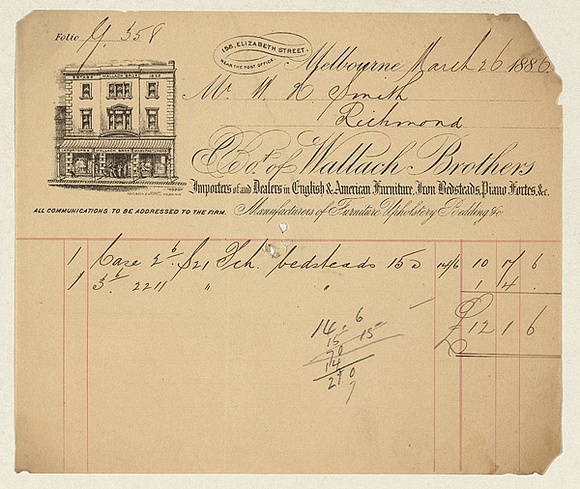 Folio Y. 358
150, ELIZABETH STREET.
NEAR THE POST OFFICE.
Melbourne March 26 1886
Mr W. H. Smith
Richmond
WALLACH BROS
WALLACH BROS MANUFACTURERS
Bot. of Wallach Brothers
Importers of and Dealers in English & American Furniture, Iron Bedsteads, Piano Fortes, &c.
ALL COMMUNICATIONS TO BE ADDRESSED TO THE FIRM.
Manufacturers of Furniture Upholstery Bedding &c
1 Case 2 6 521 Fch. bedsteads 15 0 14/6 10 17 6
1 3 6 2211 " " 1 4 .
£ 12 1 6
14 = 6
15 15
70
14
210
7